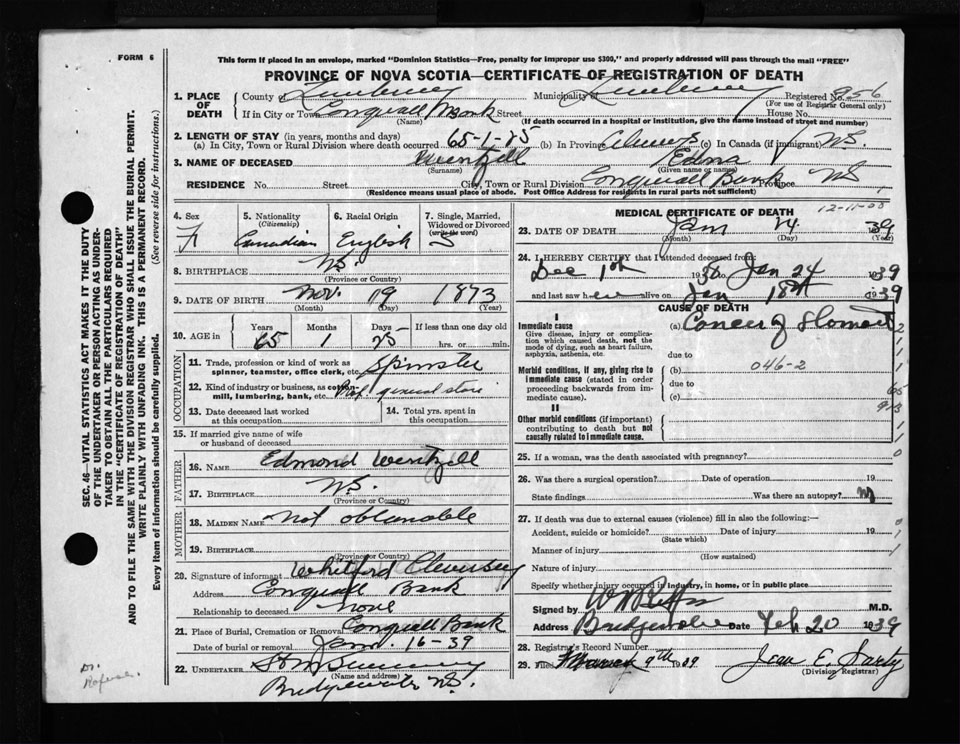 FORM 6
This form if placed in an envelope, marked "Dominion Statistics—Free, penalty for improper use $300," and properly addressed will pass through the mail "FREE"
PROVINCE OF NOVA SCOTIA—CERTIFICATE OF REGISTRATION OF DEATH
1. PLACE OF DEATH
County of Lunenburg Municipality of Lunenburg Registered No. 956
(For use of Registrar General only)
If in City or Town Conquerall Bank Street House No.
(Name) (If death occurred in a hospital or Institution, give the name instead of street and number)
2. LENGTH OF STAY (in years, months and days)
(a) In City, Town or Rural Division where death occurred 65-1-25 (b) In Province Always (c) In Canada (if immigrant) N.S.
3. NAME OF DECEASED Wentzell Edna V
(Surname) (Given name or names)
RESIDENCE No. Street City, Town or Rural Division Conquerall Bank Province N.S.
(Residence means usual place of abode. Post Office Address for residents in rural parts not sufficient)
4. Sex F
5. Nationality (Citizenship) Canadian
6. Racial Origin English
7. Single, Married, Widowed or Divorced (write the word) S
8. BIRTHPLACE N.S.
(Province or Country)
9. DATE OF BIRTH Nov. 19 1873
(Month) (Day) (Year)
10. AGE in Years Months Days If less than one day old
65 1 25 hrs. or min.
OCCUPATION
11. Trade, profession or kind of work as spinner, teamster, office clerk, etc. Spinster
12. Kind of industry or business, as cotton-mill, lumbering, bank, etc. general store
13. Date deceased last worked at this occupation
14. Total yrs. spent in this occupation
15. If married give name of wife or husband of deceased
FATHER
16. Name Edmond Wentzell
17. Birthplace N.S.
(Province or Country)
MOTHER
18. Maiden Name Not obtainable
19. Birthplace
(Province or Country)
20. Signature of informant Whitford Cleversey
Address Conquerall Bank
Relationship to deceased None
21. Place of Burial, Cremation or Removal Conquerall Bank
Date of burial or removal Jan. 16-39
22. UNDERTAKER
(Name and address)
Bridgewater N.S.
MEDICAL CERTIFICATE OF DEATH
12-11-05
23. DATE OF DEATH Jan 14 1939
(Month) (Day) (Year)
24. I HEREBY CERTIFY that I attended deceased from:
Dec 1st 1938 Jan 24 1939
and last saw her alive on Jan 18th 1939
CAUSE OF DEATH
I
Immediate cause
Give disease, injury or complication which caused death, not the mode of dying, such as heart failure, asphyxia, asthenia, etc.
(a) Cancer of Stomach
due to
Morbid conditions, if any, giving rise to immediate cause (stated in order proceeding backwards from immediate cause).
(b) 046-2
due to
(c)
II
Other morbid conditions (if important) contributing to death but not causally related to immediate cause.
25. If a woman, was the death associated with pregnancy?
26. Was there a surgical operation? Date of operation 19
State findings Was there an autopsy?
27. If death was due to external causes (violence) fill in also the following:—
Accident, suicide or homicide? Date of injury 19
(State which)
Manner of injury
(How sustained)
Nature of injury
Specify whether injury occurred in Industry, in home, or in public place
Signed by M.D.
Address Bridgewater Date Feb 20 1939
28. Registrar's Record Number
29. Filed March 9th 39 Jean E. Sarty
(Division Registrar)
SEC. 46—VITAL STATISTICS ACT MAKES IT THE DUTY OF THE UNDERTAKER OR PERSON ACTING AS UNDERTAKER TO OBTAIN ALL THE PARTICULARS REQUIRED IN THE "CERTIFICATE OF REGISTRATION OF DEATH" AND TO FILE THE SAME WITH THE DIVISION REGISTRAR WHO SHALL ISSUE THE BURIAL PERMIT.
WRITE PLAINLY WITH UNFADING INK. THIS IS A PERMANENT RECORD.
Every item of Information should be carefully supplied. (See reverse side for instructions.)